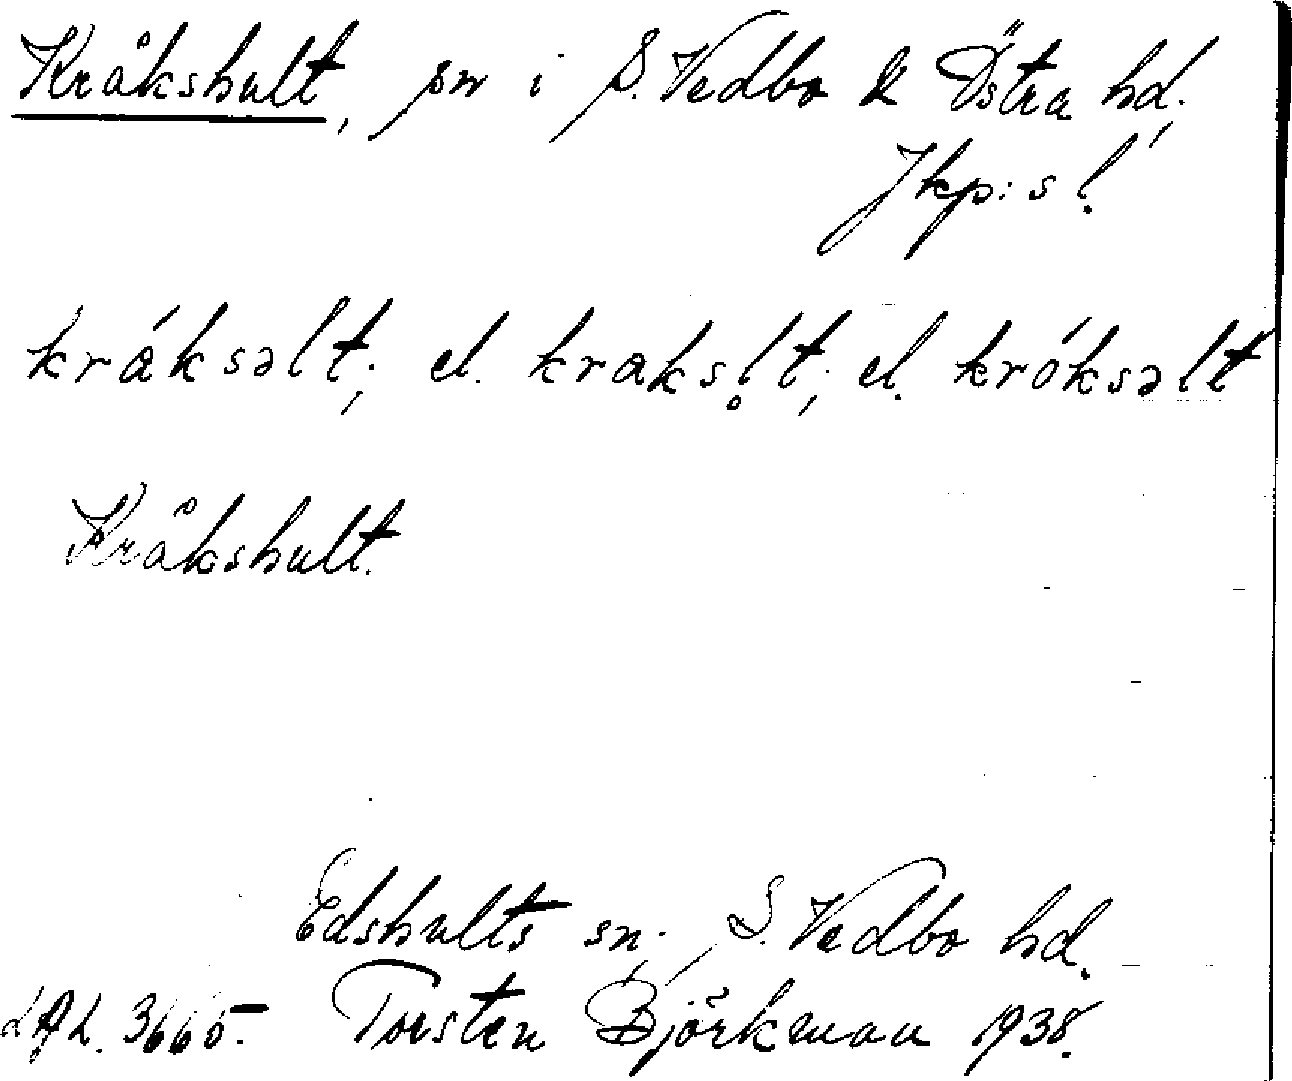 Kråkshult, sn i S. Vedbo & Östra hd,
Jkp:s l.
kráksəlt; el. kraksl̥t; el. króksəlt
Kråkshult.
Edshults sn, S. Vedbo hd.
LAL. 3665. Torsten Björkman 1938.